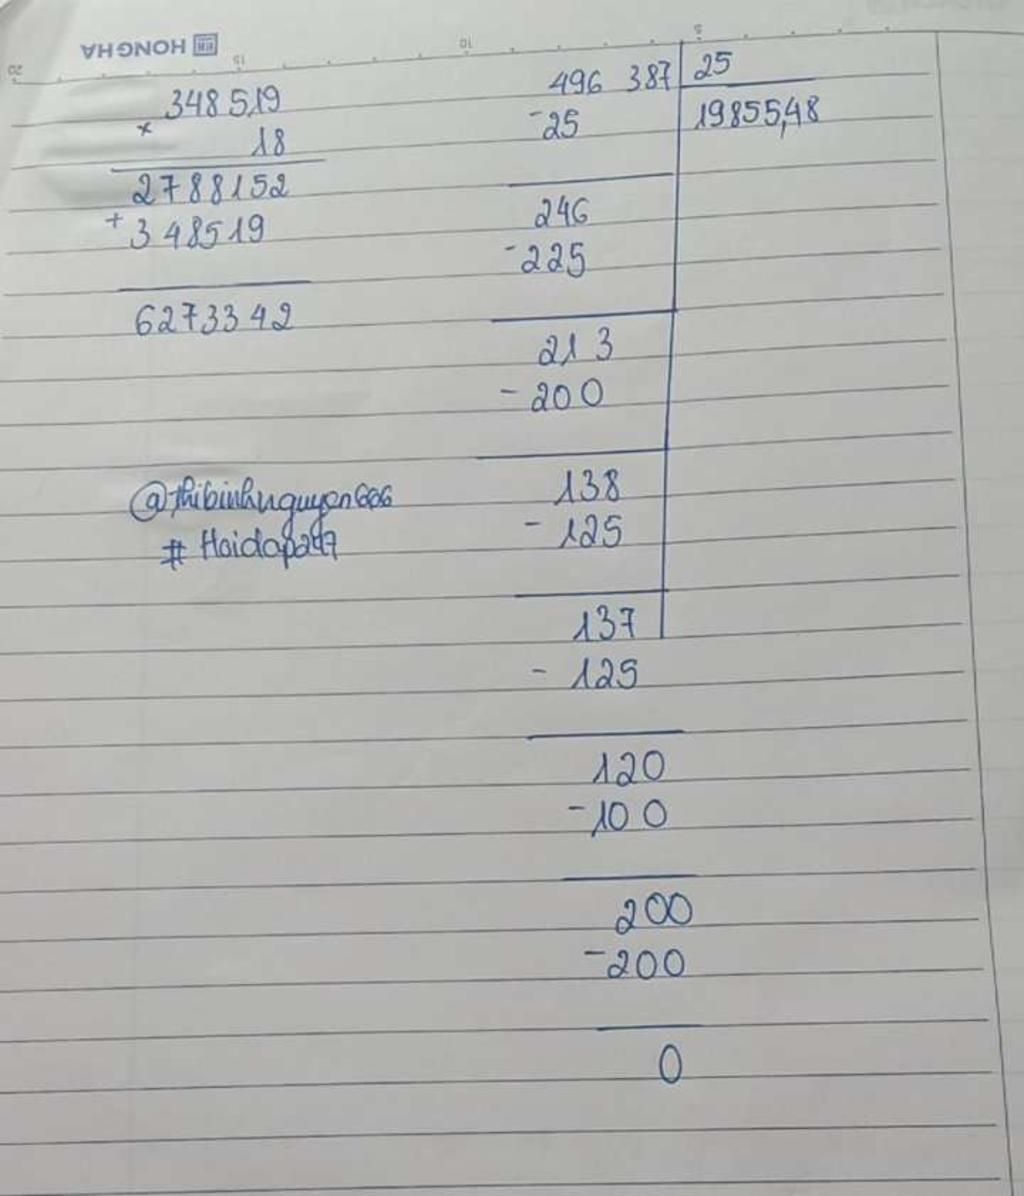 HONG HA
20 15 10 5
348519
x
18
2788152
+ 348519
6273342
@thibinhnguyen606
# Hoidap247
496 387 25
- 25 19855,48
246
- 225
213
- 200
138
- 125
137
- 125
120
- 100
200
- 200
0